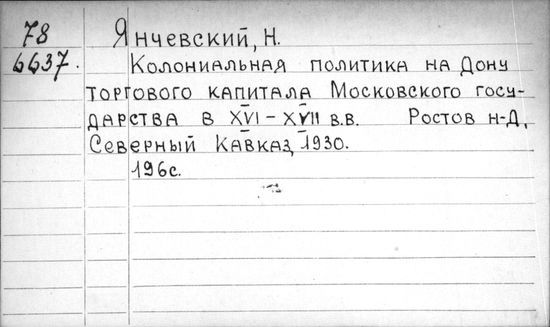 78 Янчевский, Н.
6637. Колониальная политика на Дону
торгового капитала Московского госу-
дарства в XVI-XVII в.в. Ростов н-Д,
Северный Кавказ, 1930.
196с.